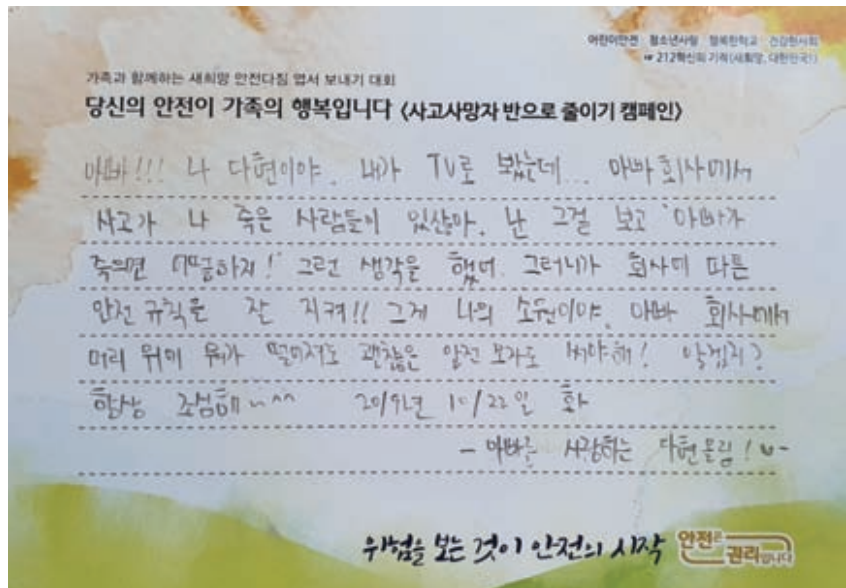 어린이안전 청소년사랑 행복한학교 건강한사회
212혁신의 기적(새희망, 대한민국!)
가족과 함께하는 새희망 안전다짐 엽서 보내기 대회
당신의 안전이 가족의 행복입니다 <사고사망자 반으로 줄이기 캠페인>
아빠!!! 나 다현이야. 내가 TV로 봤는데... 아빠 회사에서
사고가 나 죽은 사람들이 있잖아. 난 그걸 보고 '아빠가
죽으면 어떡하지!' 그런 생각을 했어. 그러니까 회사에 따른
안전 규칙을 잘 지켜!! 그게 나의 소원이야. 아빠 회사에서
머리 위에 뭐가 떨어져도 괜찮은 안전 모자도 써야해! 알겠지?
항상 조심해~^^ 2019년 10/22일 화
- 아빠를 사랑하는 다현올림!
위험을 보는 것이 안전의 시작
안전은 권리입니다